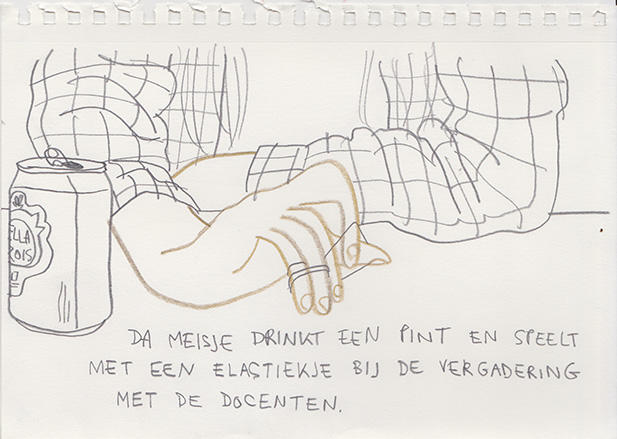 ELLA
OIS
DA MEISJE DRINKT EEN PINT EN SPEELT
MET EEN ELASTIEKJE BIJ DE VERGADERING
MET DE DOCENTEN.